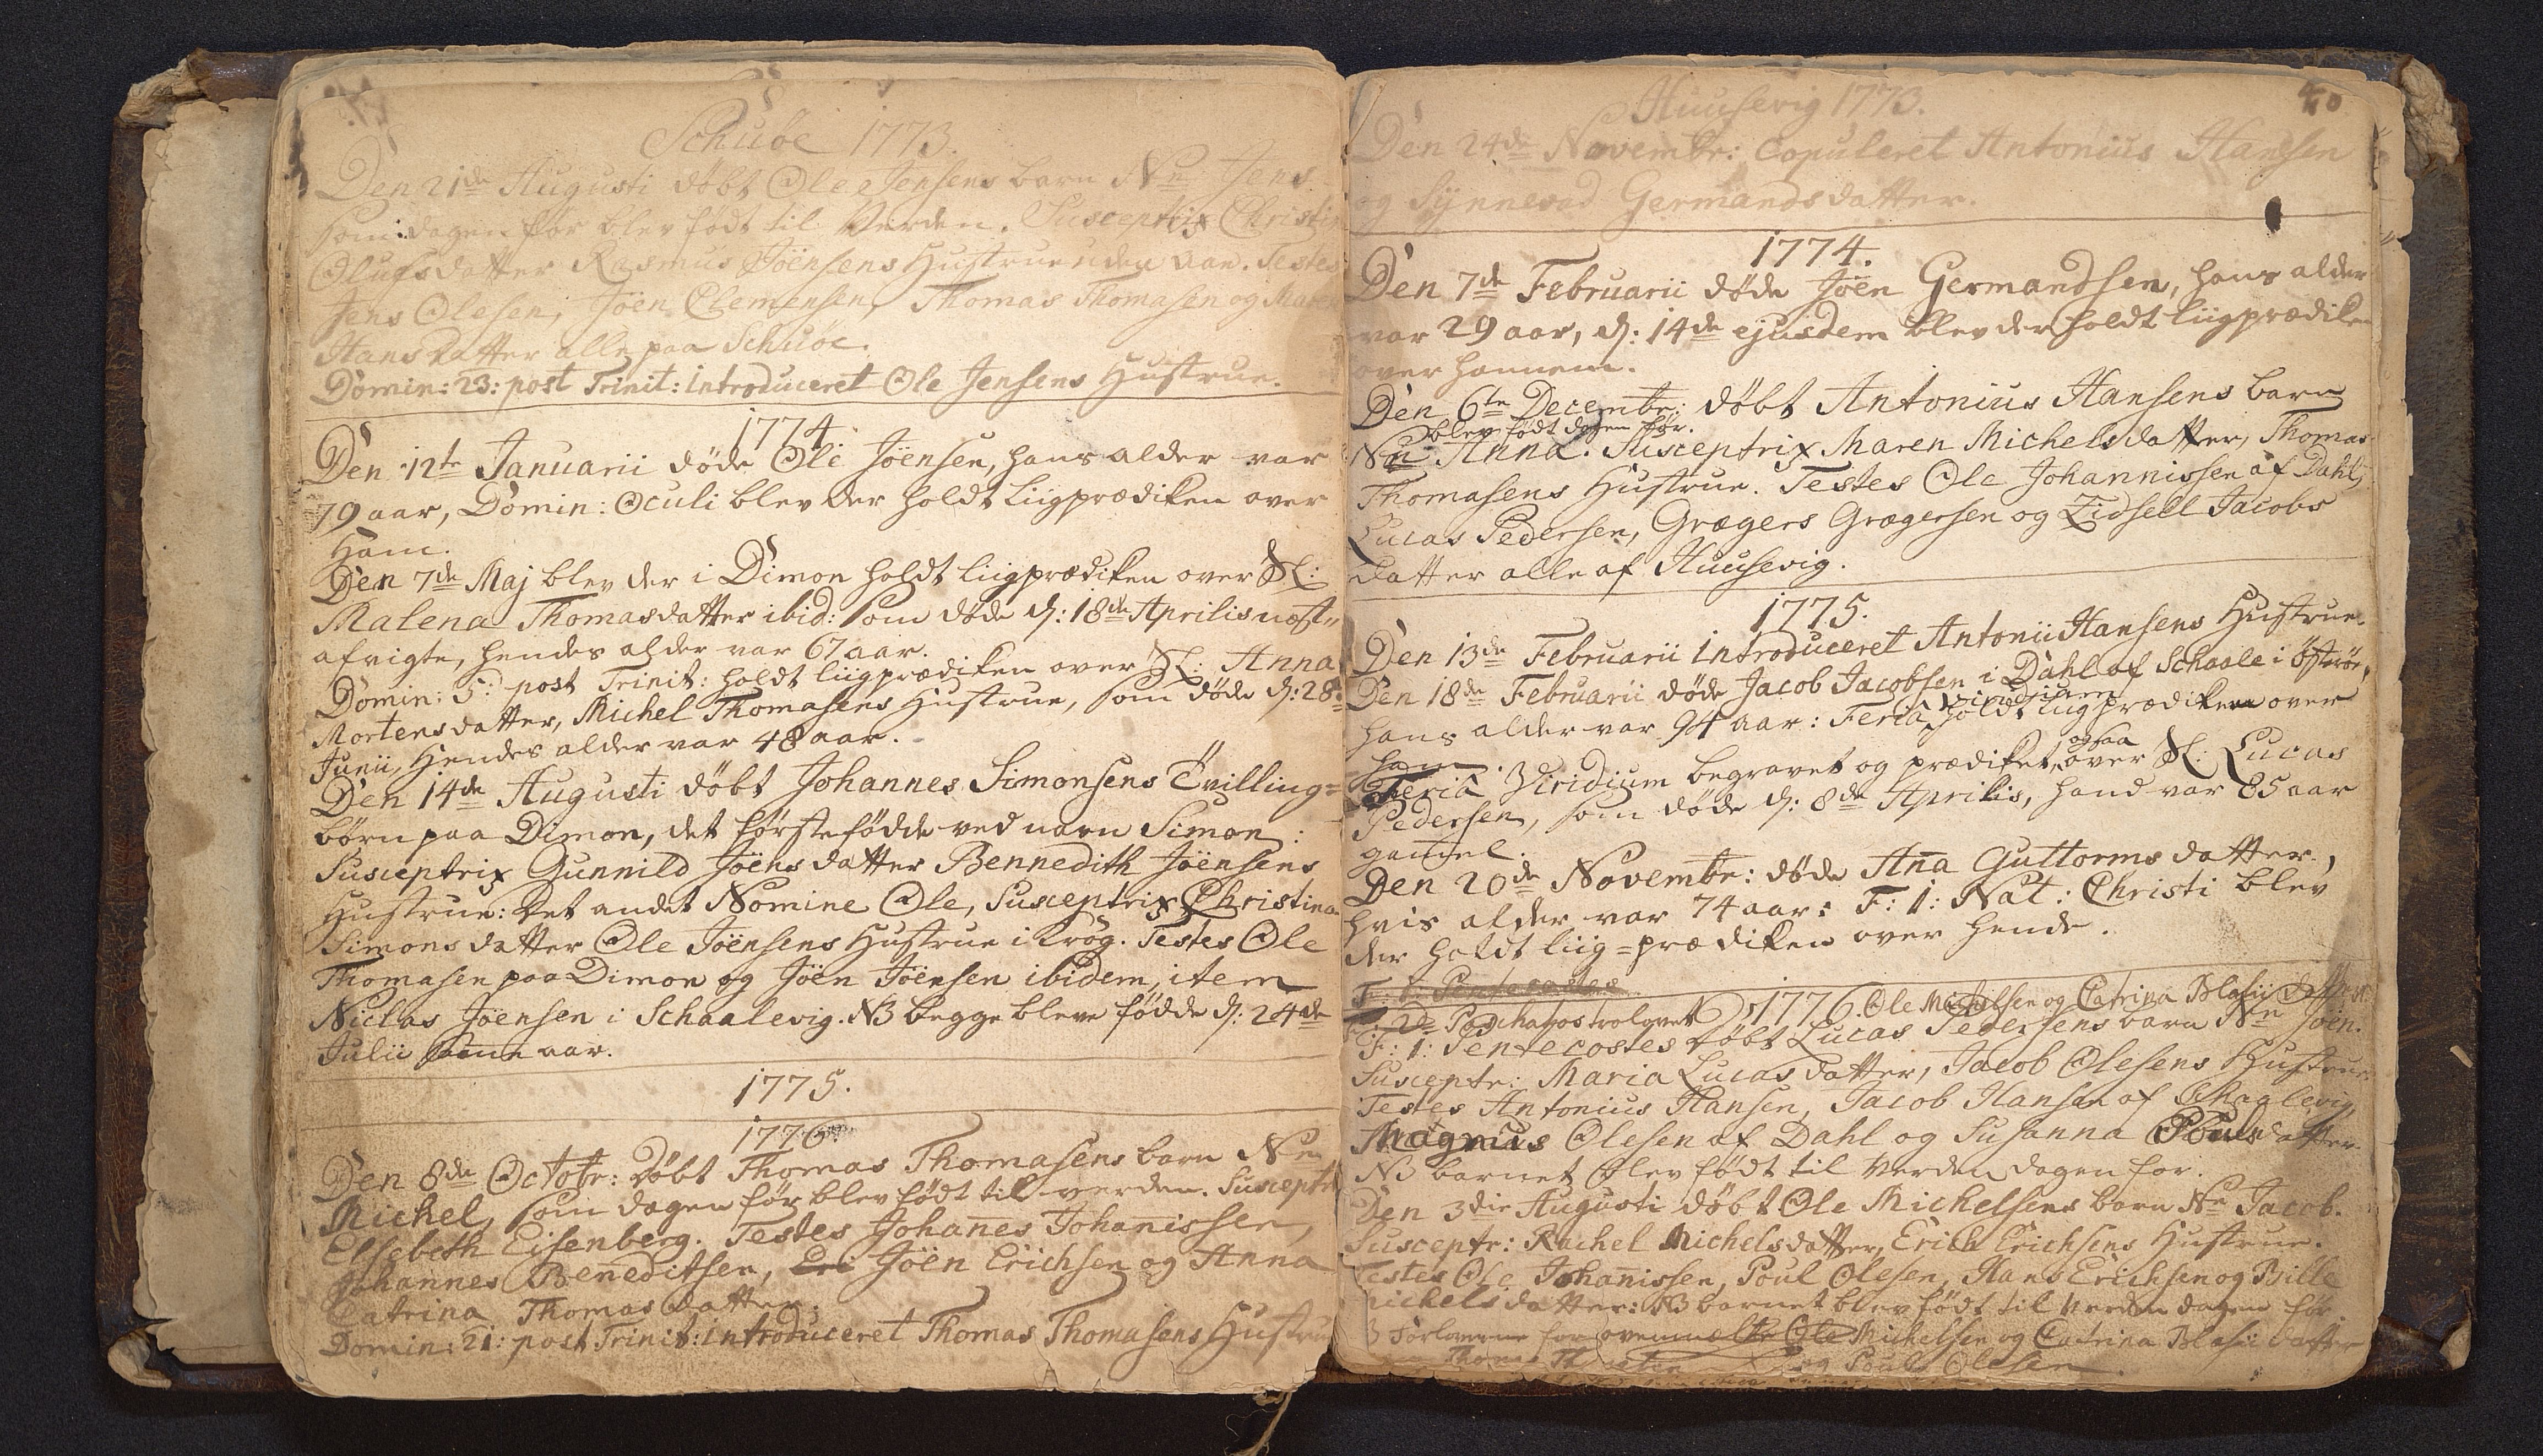 Schuöe 1773.
Den 21de Augusti döbt Ole Jensens barn Nne Jens
som dagen för blev födt til Verden. Susceptrix Christin
Olufsdatter Rasmus Jöensens Hustrue uden aar. Testes
Jens Olesen, Jöen Clemensen, Thomas Thomasen og Maren
Hansdatter alle paa Schuöe.
Domin: 23: post Trinit: introduceret Ole Jensens Hustrue.
1774.
Den 12te Januarii döde Ole Jöensen, hans alder var
79 aar, Domin: Oculi blev der holdt Liigprædiken over
Ham.
Den 7de Maj blev der i Dimon holdt liigprædiken over Sl:
Malena Thomasdatter ibid: som döde d: 18de Aprilis næst-
afvigte, hendes alder var 67 aar.
Domin: 5: post Trinit: holdt liigprædiken over Sl: Anna
Mortensdatter, Michel Thomasens Hustrue, som döde d: 28de
Junii, Hendes alder var 48 aar.
Den 14de Augusti döbt Johannes Simonsens Tvilling=
börn paa Dimon, det förstefödde ved navn Simon:
Susceptrix Gunnild Jöensdatter Bennedith Jöensens
Hustrue: Det andet Nomine Ole, Susceptrix Christina
Simonsdatter Ole Jöensens Hustrue i Krög. Testes Ole
Thomasen paa Dimon og Jöen Jöensen ibidem, item
Niclas Jöensen i Schaalevig. NB begge bleve födde d: 24de
Julii samme aar.
1775.
1776.
Den 8de Octobr: döbt Thomas Thomasens barn Nne
Michel, som dagen för blev födt til verden. Susceptr
Elsebeth Eisenberg. Testes Johanes Johanissen,
Johannes Beneditsen, Eri Jöen Erichsen og Anna
Catrina Thomasdatter.
Domin: 21: post Trinit: introduceret Thomas Thomasens Hustrue
40
Huusevig 1773.
Den 24de Novembr: Copuleret Antonius Hansen
og Synnevad Germandsdatter.
1774.
Den 7de Februarii döde Jöen Germandsen, hans alder
var 29 aar, d: 14de ejusdem blev der holdt liigprædiken
over hannem.
Den 6te Decembr: döbt Antonius Hansens barn
blev födt dagen för.
Nne Anna. Susceptrix Maren Michelsdatter, Thomas
Thomasens Hustrue. Testes Ole Johannissen af Dahl,
Lucas Pedersen, Grægers Grægersen og Zidsell Jacobs
datter alle af Huusevig.
1775.
Den 13de Februarii introduceret Antonii Hansens Hustrue.
Den 18de Februarii döde Jacob Jacobsen i Dahl af Schaale i Österöe,
hans alder var 94 aar: Feria Viridium holdt liigprædiken over
ham.
Feria Viridium begravet og prædiket ogsaa over Sl: Lucas
Pedersen, som döde d: 8de Aprilis, hand var 85 aar
gamel.
Den 20de Novembr: döde Ana Guttormsdatter,
hvis alder var 74 aar: F: 1: Nat: Christi blev
der holdt liig=prædiken over hende.
F: 1: Pentecostes
F: 2de Paschatos trolovet 1776. Ole Michelsen og Catrina Blasii datter.
F: 1: Pentecostes döbt Lucas Pedersens barn Nne Jöen.
Susceptr: Maria Lucasdatter, Jacob Olesens Hustrue
Testes Antonius Hansen, Jacob Hansen af Schaalevig,
Magnus Olesen af Dahl og Susanna Poulsdatter
NB barnet blev födt til Verden dagen för.
Den 3die Augusti döbt Ole Michelsens barn Nne Jacob.
Susceptr: Rachel Michelsdatter, Erich Erichsens Hustrue.
Testes Ole Johanissen, Poul Olesen, Hans Erichsen og Bille
Michelsdatter: NB barnet blev födt til Verden dagen för.
NB Forloverne for ovenmælte Ole Michelsen og Catrina Blasii datter
Thomas og Poul Olesen